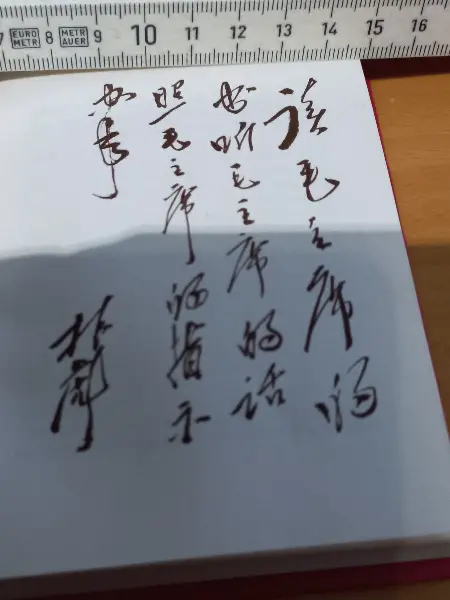 7 EURO METR 8 METR AUER 9 10 11 12 13 14 15
读毛主席的
书听毛主席的话
照毛主席的指示
办事
林彪